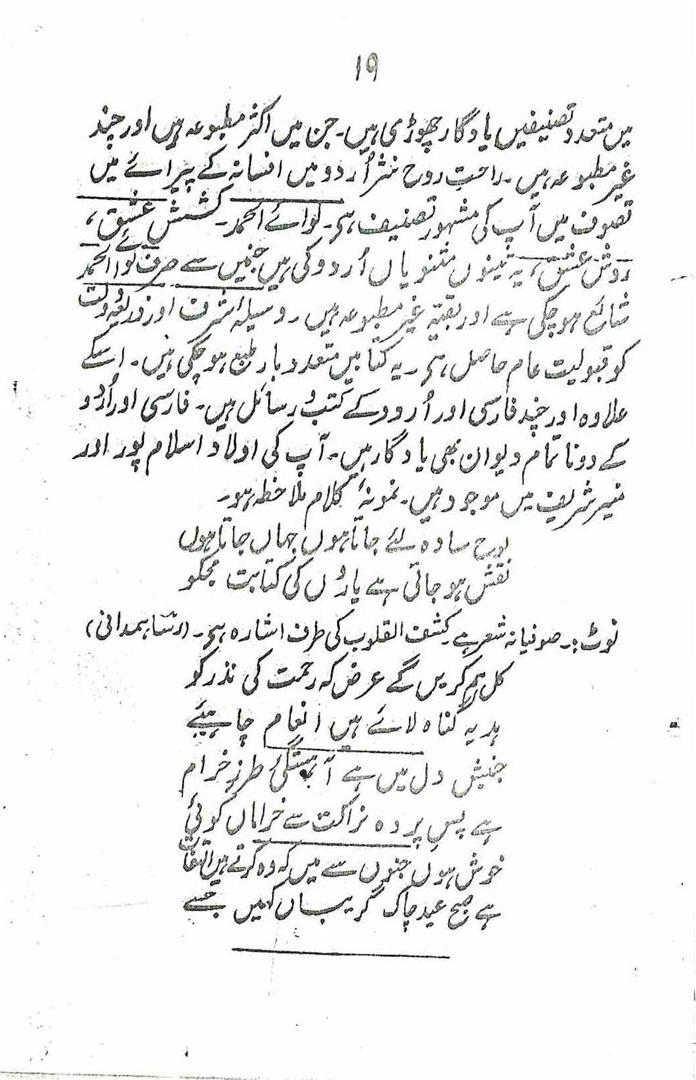 ۱۹
میں متعدد تصنیفیں یادگار چھوڑی ہیں۔ جن میں اکثر مطبوعہ ہیں اور چند
غیر مطبوعہ ہیں۔ راحتِ روح نثر اُردو میں افسانہ کے پیرائے میں
تصوف میں آپ کی مشہور تصنیف ہی۔ لوائے الحمد۔ کششِ عشق،
روشِ عشق، یہ تینوں مثنویاں اُردو کی ہیں جنمیں سے صرف لوائے الحمد
شائع ہو چکی ہے اور بقیہ غیر مطبوعہ ہیں۔ وسیلۂ شرف اور ذریعۂ دولت
کو قبولیت عام حاصل ہی۔ یہ کتابیں متعدد بار طبع ہو چکی ہیں۔ اسکے
علاوہ اور چند فارسی اور اُردو کے کتب و رسائل ہیں۔ فارسی اور اُردو
کے دو ناتمام دیوان بھی یادگار ہیں۔ آپ کی اولاد اسلام پور اور
منیر شریف میں موجود ہیں۔ نمونۂ کلام ملاحظہ ہو۔
لوحِ سادہ لئے جاتا ہوں جہاں جاتا ہوں
نقش ہو جاتی ہے یاروں کی کتابت مجکو
نوٹ:۔ صوفیانہ شعر ہے۔ کشف القلوب کی طرف اشارہ ہی۔ (رسا ہمدانی)
کل ہم کریں گے عرض کہ رحمت کی نذر کو
ہدیہ گناہ لائے ہیں انعام چاہیئے
جنبش دل میں ہے آہستگیٔ طرزِ خرام
ہے پسِ پردہ نزاکت سے خراماں کوئی
خوش ہوں جنوں سے میں کہ وہ کرتے ہیں التفات
ہے صبحِ عید چاک گریباں کہیں جسے